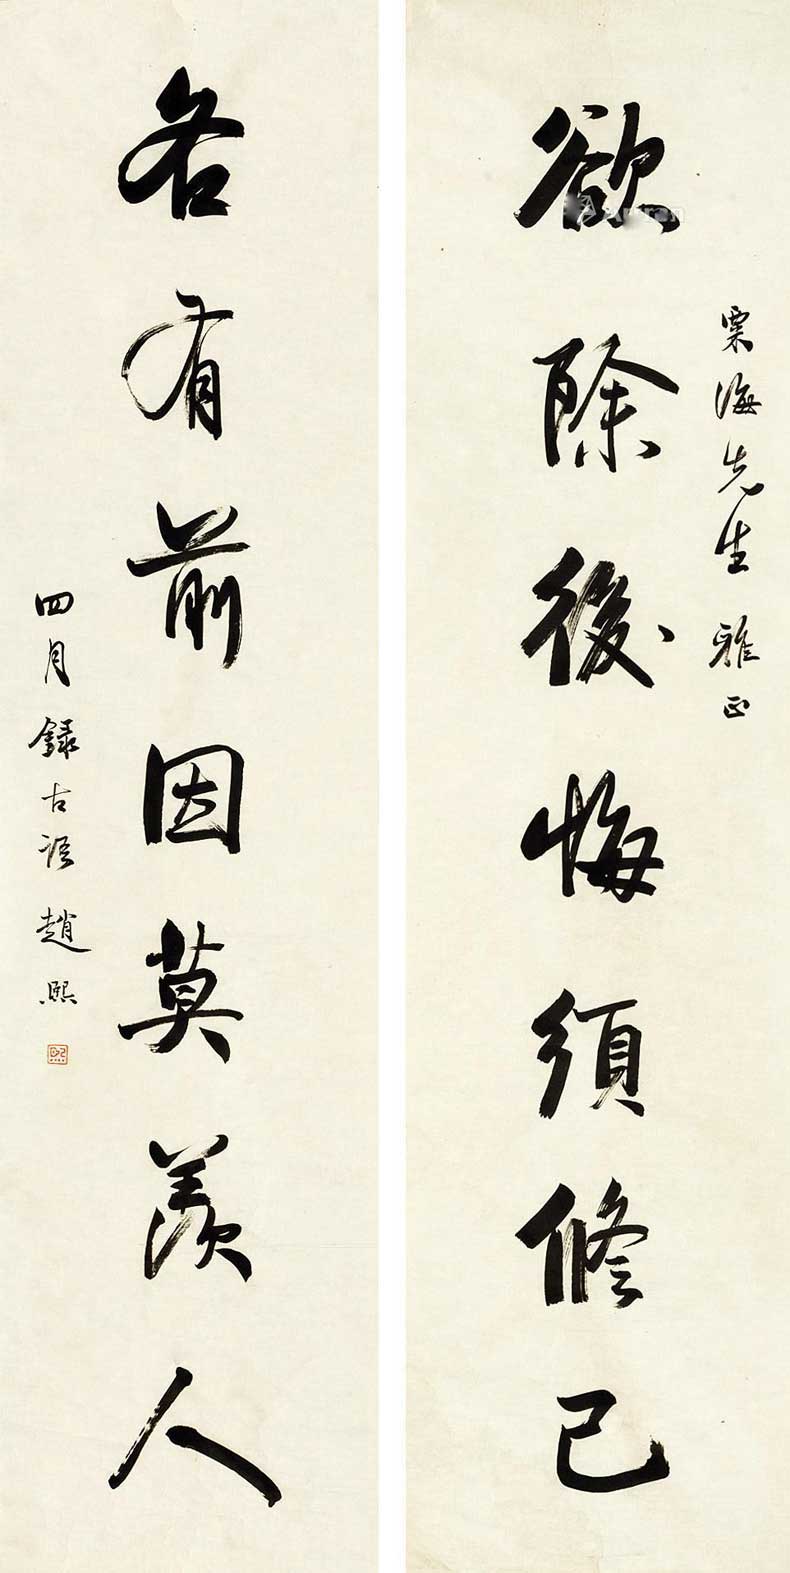 栗海先生雅正
欲除後悔須修己
各有前因莫羨人
四月錄古語趙熙
熙